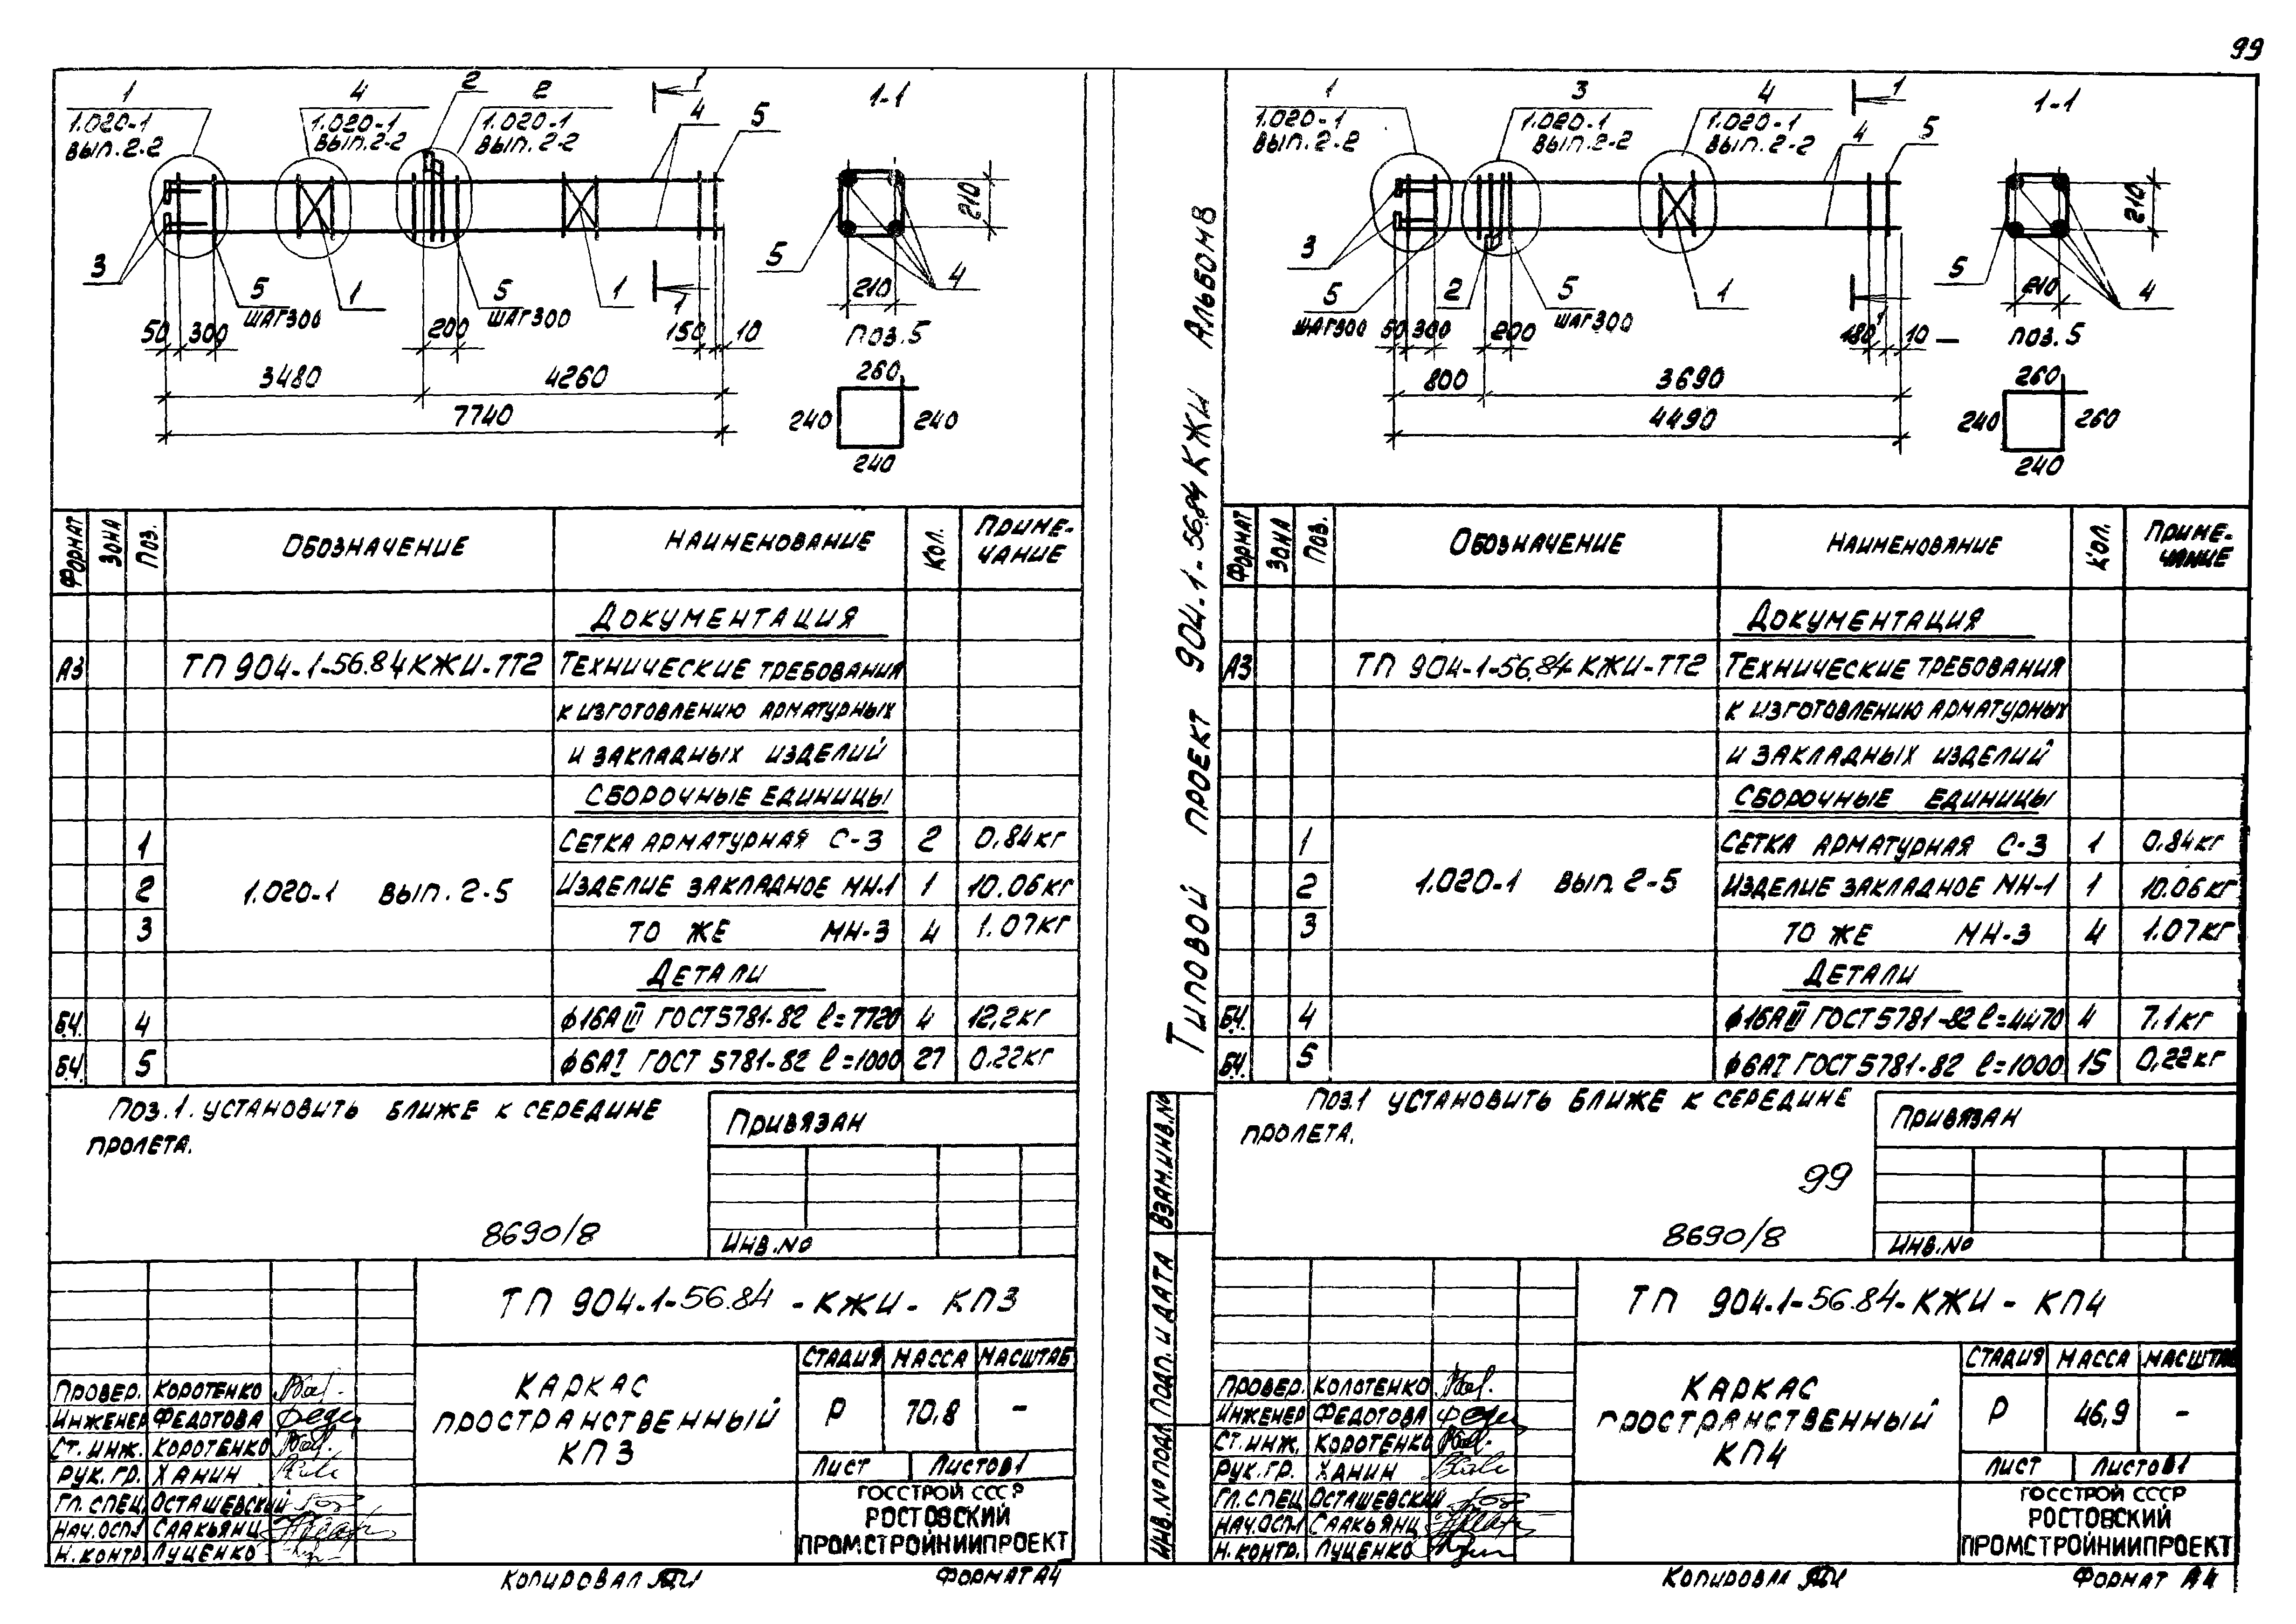 99
1
1.020-1
ВЫП.2-2
4
1.020-1
ВЫП.2-2
2
2
1.020-1
ВЫП.2-2
1
4
5
1-1
3
5
ШАГ 300
1
5
ШАГ 300
1
1
50
300
200
150
10
3480
4260
7740
210
5
4
210
ПОЗ.5
260
240
240
240
ФОРМАТ
ЗОНА
ПОЗ.
ОБОЗНАЧЕНИЕ
НАИМЕНОВАНИЕ
КОЛ.
ПРИМЕ-
ЧАНИЕ
ДОКУМЕНТАЦИЯ
А3 ТП 904-1-56.84 КЖИ-ТТ2 ТЕХНИЧЕСКИЕ ТРЕБОВАНИЯ
К ИЗГОТОВЛЕНИЮ АРМАТУРНЫХ
И ЗАКЛАДНЫХ ИЗДЕЛИЙ
СБОРОЧНЫЕ ЕДИНИЦЫ
1 СЕТКА АРМАТУРНАЯ С-3 2 0,84 кг
2 1.020-1 ВЫП. 2-5 ИЗДЕЛИЕ ЗАКЛАДНОЕ МН-1 1 10.06 кг
3 ТО ЖЕ МН-3 4 1.07 кг
ДЕТАЛИ
Б.Ч. 4 ϕ16АIII ГОСТ 5781-82 ℓ=7720 4 12,2 кг
Б.Ч. 5 ϕ6АI ГОСТ 5781-82 ℓ=1000 27 0.22 кг
ПОЗ.1. УСТАНОВИТЬ БЛИЖЕ К СЕРЕДИНЕ
ПРОЛЕТА.
ПРИВЯЗАН
8690/8
ИНВ.№
ТП 904-1-56.84 -КЖИ- КП3
КАРКАС
ПРОСТРАНСТВЕННЫЙ
КП3
СТАДИЯ МАССА МАСШТАБ
Р 70,8 -
ЛИСТ ЛИСТОВ 1
ПРОВЕР. КОРОТЕНКО
ИНЖЕНЕР ФЕДОТОВА
СТ. ИНЖ. КОРОТЕНКО
РУК. ГР. ХАНИН
ГЛ. СПЕЦ. ОСТАШЕВСКИЙ
НАЧ.ОСП.1 СААКЬЯНЦ
Н. КОНТР. ЛУЦЕНКО
ГОССТРОЙ СССР
РОСТОВСКИЙ
ПРОМСТРОЙНИИПРОЕКТ
КОПИРОВАЛ
ФОРМАТ А4
ТИПОВОЙ ПРОЕКТ 904-1-56.84 КЖИ АЛЬБОМ 8
ВЗАМ.ИНВ.№
ПОДП. И ДАТА
ИНВ.№ ПОДЛ.
1
1.020-1
ВЫП.2-2
3
1.020-1
ВЫП.2-2
4
1.020-1
ВЫП.2-2
1
4
5
1-1
3
5
ШАГ 300
2
5
ШАГ 300
1
1
50
300
200
180
10
800
3690
4490
210
5
4
210
ПОЗ. 5
260
240
260
240
ФОРМАТ
ЗОНА
ПОЗ.
ОБОЗНАЧЕНИЕ
НАИМЕНОВАНИЕ
КОЛ.
ПРИМЕ-
ЧАНИЕ
ДОКУМЕНТАЦИЯ
А3 ТП 904-1-56.84 КЖИ-ТТ2 ТЕХНИЧЕСКИЕ ТРЕБОВАНИЯ
К ИЗГОТОВЛЕНИЮ АРМАТУРНЫХ
И ЗАКЛАДНЫХ ИЗДЕЛИЙ
СБОРОЧНЫЕ ЕДИНИЦЫ
1 СЕТКА АРМАТУРНАЯ С-3 1 0,84 кг
2 1.020-1 ВЫП. 2-5 ИЗДЕЛИЕ ЗАКЛАДНОЕ МН-1 1 10.06 кг
3 ТО ЖЕ МН-3 4 1.07 кг
ДЕТАЛИ
Б.Ч. 4 ϕ16АIII ГОСТ 5781-82 ℓ=4470 4 7.1 кг
Б.Ч. 5 ϕ6АI ГОСТ 5781-82 ℓ=1000 15 0,22 кг
ПОЗ.1 УСТАНОВИТЬ БЛИЖЕ К СЕРЕДИНЕ
ПРОЛЕТА.
ПРИВЯЗАН
99
8690/8
ИНВ.№
ТП 904-1-56.84-КЖИ - КП4
КАРКАС
ПРОСТРАНСТВЕННЫЙ
КП4
СТАДИЯ МАССА МАСШТАБ
Р 46,9 -
ЛИСТ ЛИСТОВ 1
ПРОВЕР. КОЛОТЕНКО
ИНЖЕНЕР ФЕДОТОВА
СТ. ИНЖ. КОРОТЕНКО
РУК. ГР. ХАНИН
ГЛ. СПЕЦ ОСТАШЕВСКИЙ
НАЧ.ОСП.1 СААКЬЯНЦ
Н. КОНТР. ЛУЦЕНКО
ГОССТРОЙ СССР
РОСТОВСКИЙ
ПРОМСТРОЙНИИПРОЕКТ
КОПИРОВАЛ
ФОРМАТ А4